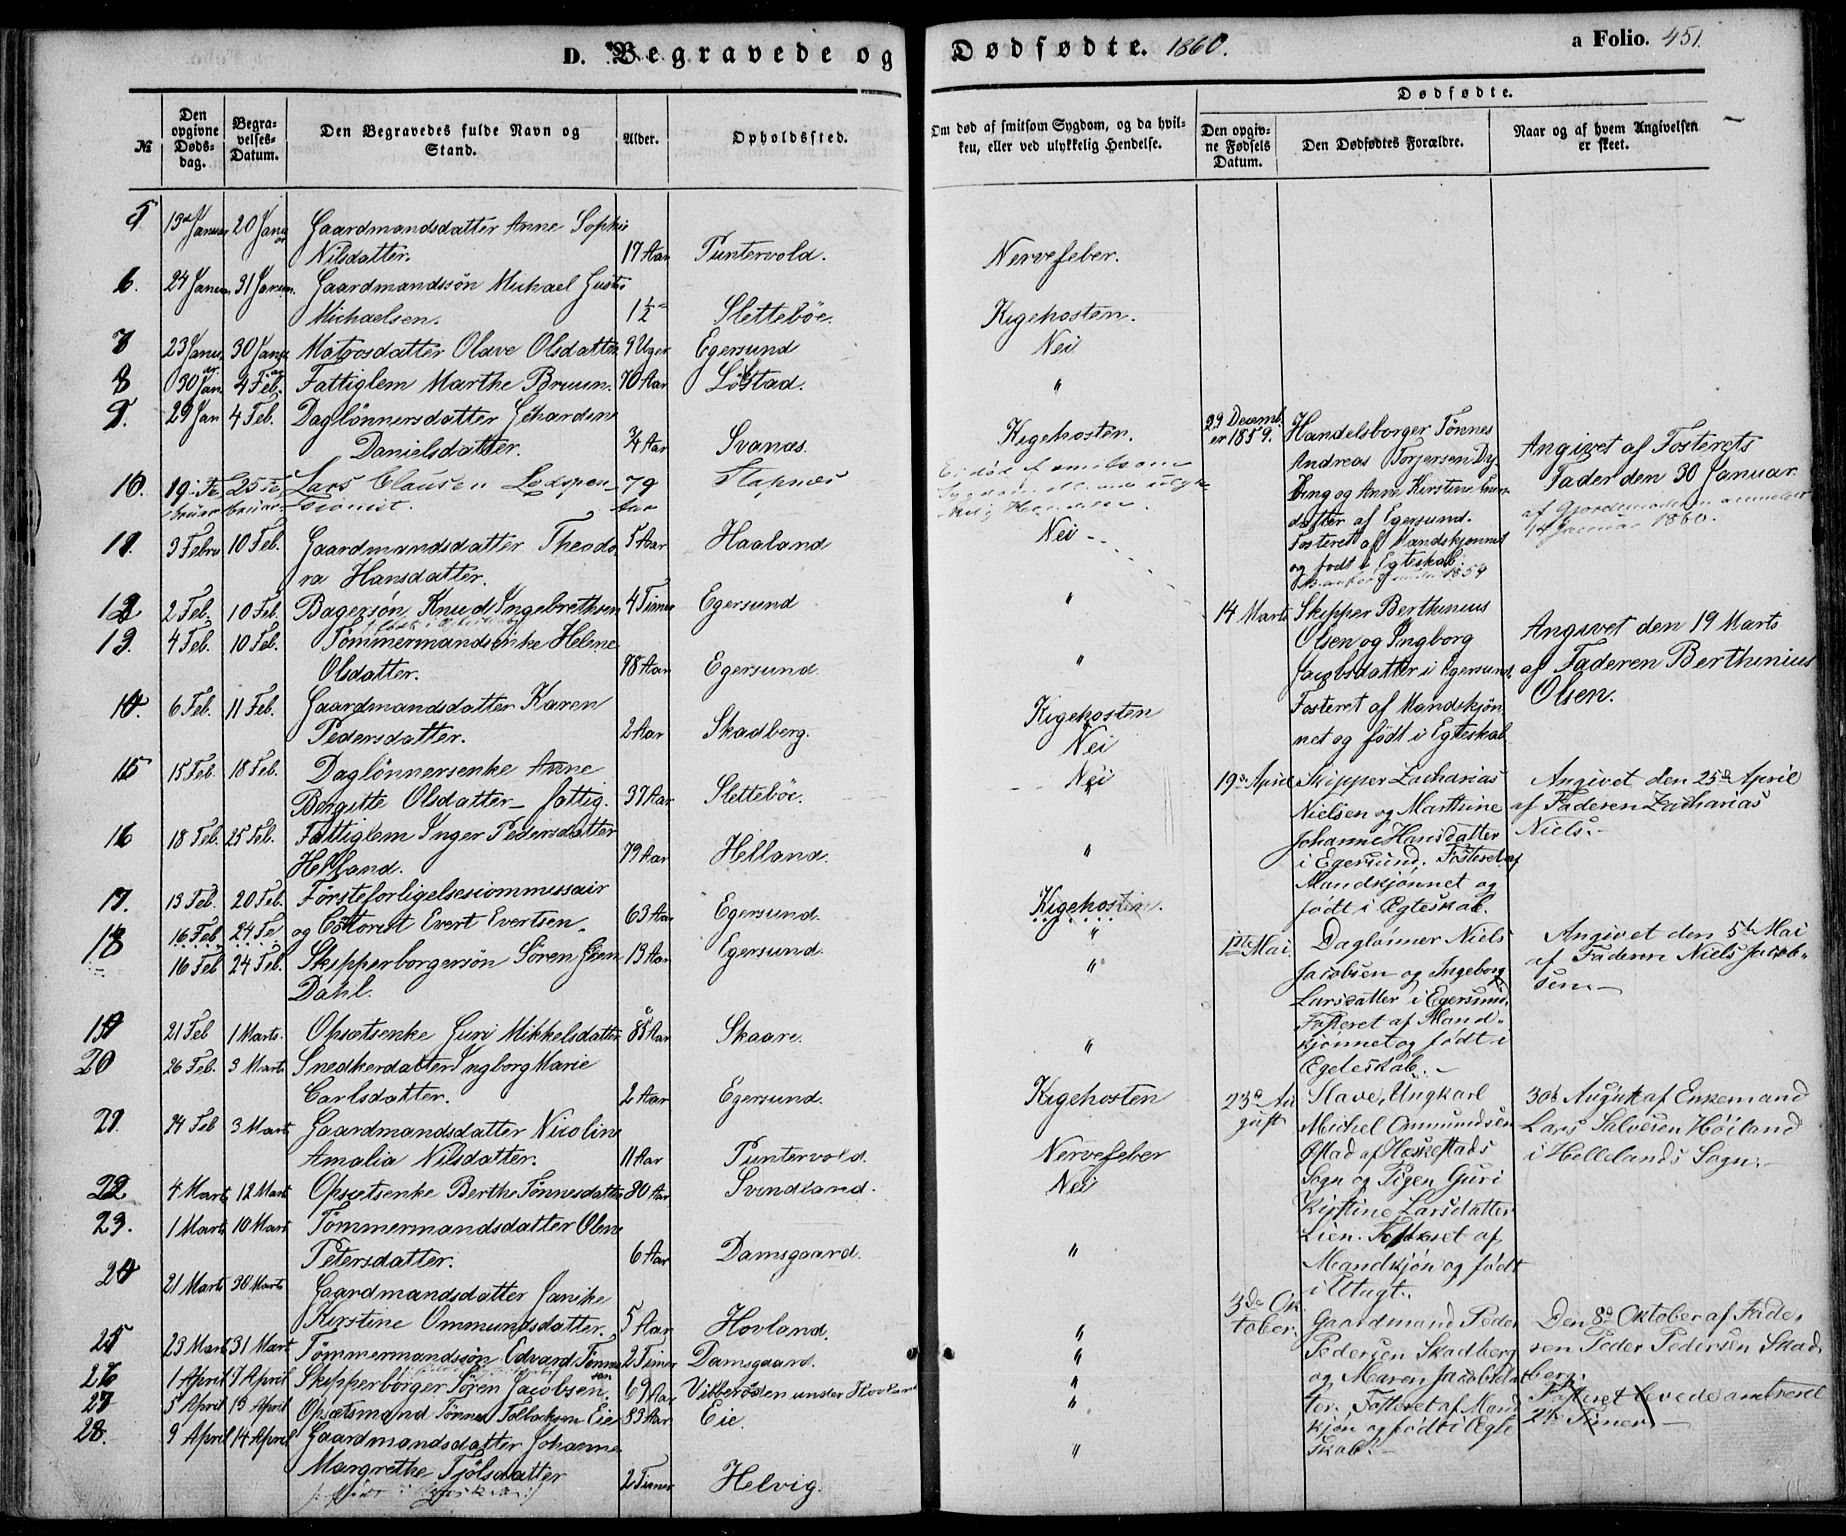 D. Begravede og Dødfødte. 1860.
a Folio. 451.
№
Den opgivne Døds-dag.
Begra-velses-Datum.
Den Begravedes fulde Navn og Stand.
Alder.
Opholdssted.
Om død af smitsom Sygdom, og da hvil-
ken, eller ved ulykkelig Hendelse.
Dødfødte.
Den opgiv-ne Fødsels Datum.
Den Dødfødtes Forældre.
Naar og af hvem Angivelsen er skeet.
5 13de Januar 20 Januar Gaardmandsdatter Anne Sophie
Nilsdatter. 17 Aar Puntervold. Nervefeber.
6. 24 Januar 31 Januar. Gaardmandssøn Michael Gustav
Michaelsen. 1½ " Slettebøe. Kigehosten.
7 23 Januar 30 Januar Matrosdatter Olave Olsdatter 9 Uger Egersund Nei
8 30 Jan 4 Feb. Fattiglem Marthe Bruun. 70 Aar Løstad. "
9. 29 Jan 4 Feb. Daglønnersdatter Gehardine
Danielsdatter. ¾ Aar Svanæs. Kigehosten.
10. 19 Februar 25 Februar Lars Clausen Lexpensionist. 79 Aar Stapnæs
11 3 Febru 10 Feb. Gaardmandsdatter Theodo
ra Hansdatter. 5 Aar Haaland Nei
12 2 Feb. 10 Feb. Bagersøn Knud Ingebrethsen 4 Timer Egersund "
13. 4 Feb. 10 Feb. Tømmermandsenke Helene
Olsdatter. 78 Aar Egersund. "
14. 6 Feb. 11 Feb. Gaardmandsdatter Karen
Pedersdatter. 2 Aar Skadberg. Kigehosten
Nei
15 15 Feb. 18 Feb. Daglønnersenke Anne
Bergitte Olsdatter fattig. 37 Aar Slettebøe. Nei
16 18 Feb. 25 Feb. Fattiglem Inger Pedersdatter
Helland. 79 Aar Helland. "
17. 13 Feb. 20 Feb. Førsteforligelsescommissair
16 Feb 24 Fe og Cottorist Evert Evertsen. 63 Aar Egersund. Kigehosten.
18 16 Feb 24 Feb. Skipperborgersøn Sören
Dahl. 13 Aar Egersund. "
19 21 Feb 1 Marts. Opsætsenke Guri Mikkelsdatter 85 Aar Skaare. "
20 26 Feb. 3 Marts Snedkerdatter Ingborg Marie
Carlsdatter. 2 Aar Egersund. Kigehosten
21. 24 Feb 3 Mart Gaardmandsdatter Nicoline
Amalia Nilsdatter. 11 Aar Puntervold. Nervefeber
22 4 Mart 12 Mart Opsætsenke Berthe Tønnesdatter 80 Aar Svindland. Nei
23. 1 Marts 10 Mart Tømmermandsdatter Olene
Petersdatter. 6 Aar Damsgaard. "
24 21 Marts 30 Marts Gaardmandsdatter Janike
Kirstine Ommundsdatter. 5 Aar Hovland. "
25 23 Mart 31 Mart Tømmermandssøn Edvard Tønnessen 2 Timer Damsgaard. "
26 1 April 7 April Skipperborger Sören Jacobsen. 69 Aar Vibberoden under Hovland "
27 5 April 13 April Opsætsmand Tønnes Tollacksen Eie 83 Aar Eie. "
28. 9 April 14 April Gaardmandsdatter Johanne
Margrethe Tjölsdatter 2 Timer Helvig. "
29 Decemb
er 1859. Handelsborger Tønnes
Andreas Torjersen Dy
ring og Anne Kirstine
datter af Egersund.
Fosteret af Mandskjønnet
og født i Egteskab.
Angivet af Fosterets
Fader den 30 Januar.
af Gjordemoderen anmeldt
Januar 1860.
14 Marts Skipper Berthinius
Olsen og Ingborg
Jacobsdatter i Egersund.
Fosteret af Mandskjøn
net og født i Egteskab
Angivet den 19 Marts
af Faderen Berthinius
Olsen.
19de April Skipper Zacharias
Nielsen og Marthine
Johanne Hansdatter
i Egersund. Fosteret af
Mandskjønnet og
født i Ægteskab.
Angivet den 25de April
af Faderen Zacharias
Niels.
1ste Mai. Daglønner Niels
Jacobsen og Ingeborg
Larsdatter i Egersund.
Fosteret af Mand-
kjønnet og født i
Egteskab.
Angivet den 5te Mai
af Faderen Niels Jacob-
sen.
23de Au
gust Slave, Ungkarl
Michel Ommundsen
Østad af Heskestads
Sogn og Pigen Guri
Kirstine Larsdatter
Lien. Fosteret af
Mandkjøn og født
i Utugt.
30te August af Enkemand
Lars Salvesen Høiland
i Hellelands Sogn.
3de Ok
tober. Gaardmand Peder
Pedersen Skadberg
og Maren Jacobsdat
ter. Fosteret af Mand
kjøn og født i Ægte
skab.
Den 8de Oktober af Fade-
ren Peder Pedersen Skad
berg.
Fosteret levede omtrent
2½ Timer